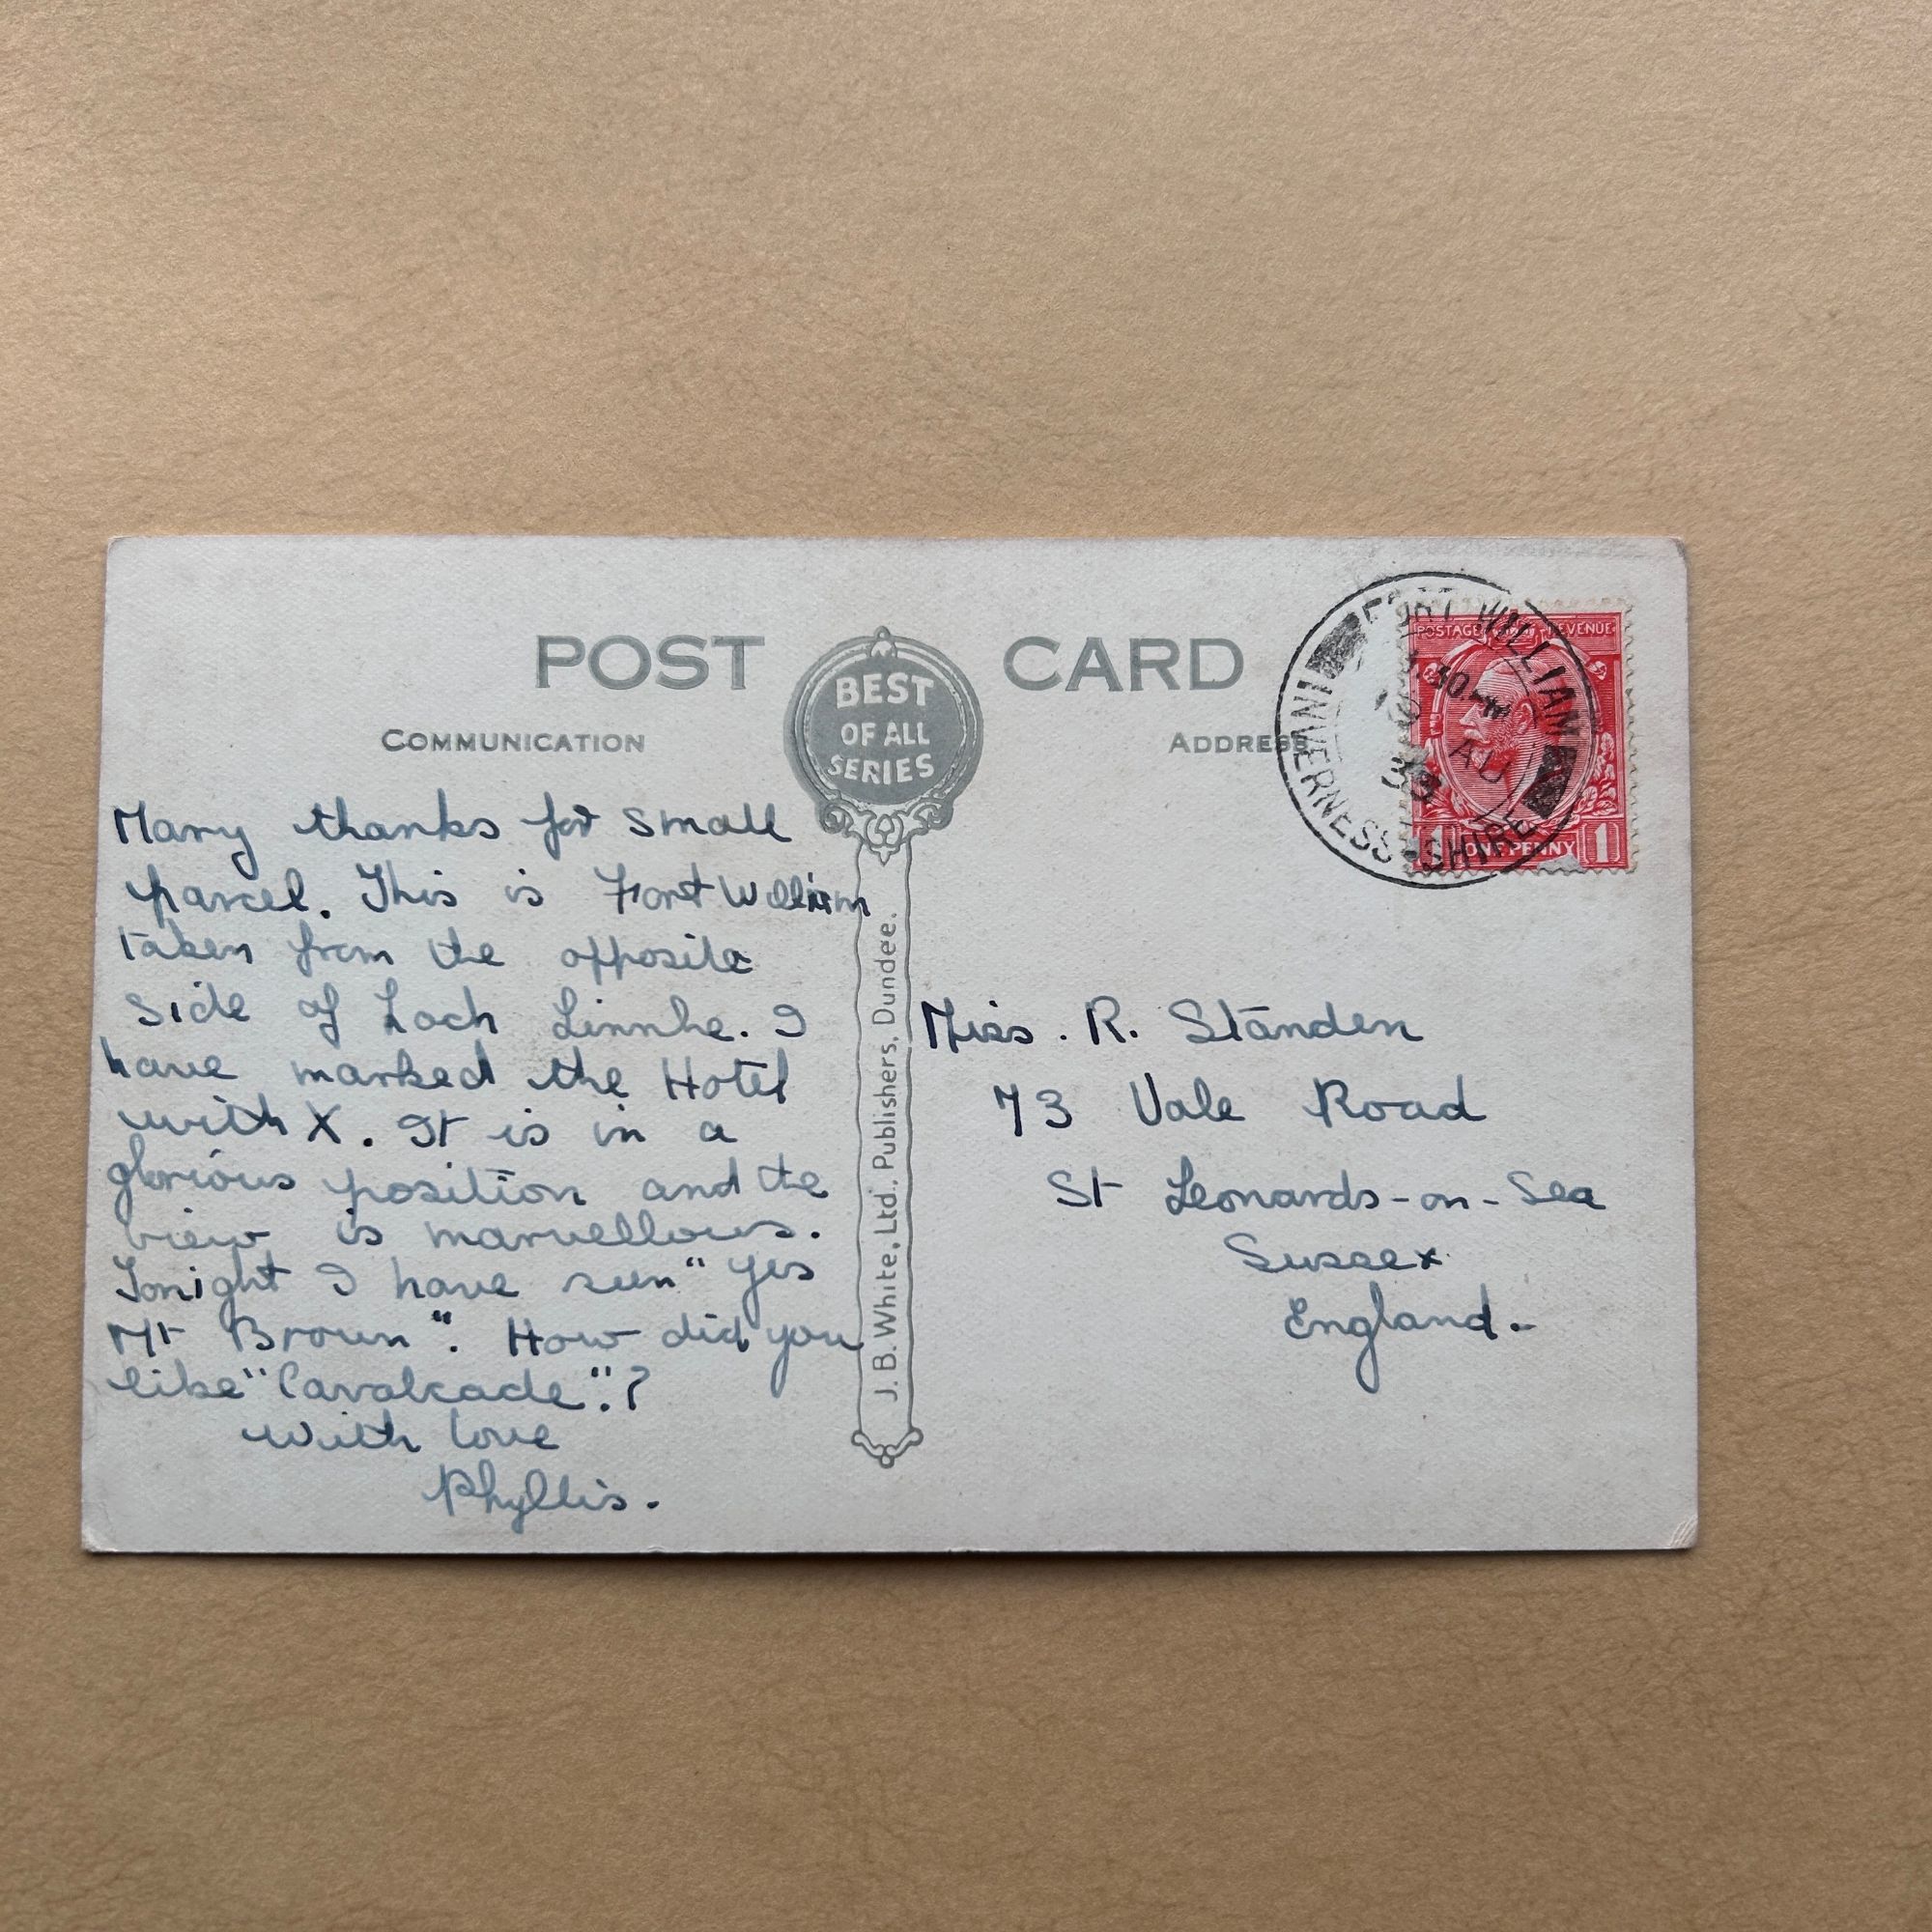 POST CARD
BEST
OF ALL
SERIES
COMMUNICATION
ADDRESS
FORT WILLIAM
INVERNESS-SHIRE
AU
33
POSTAGE REVENUE
1 ONE PENNY 1
Many thanks for small
parcel. This is Fort William
taken from the opposite
side of Loch Linnhe. I
have marked the Hotel
with X. It is in a
glorious position and the
view is marvellous.
Tonight I have seen "Yes
Mr Brown". How did you
like "Cavalcade".?
With love
Phyllis.
J. B. White, Ltd., Publishers, Dundee.
Miss. R. Standen
73 Vale Road
St Leonards-on-Sea
Sussex
England.